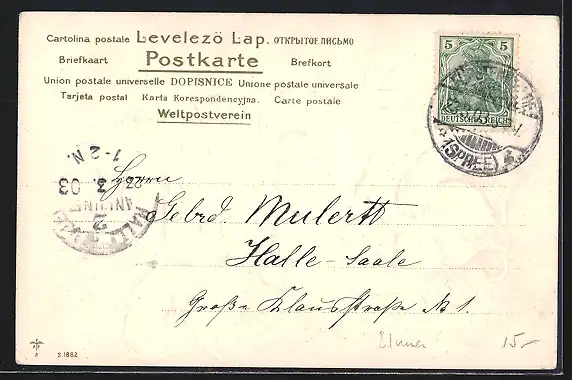 Cartolina postale Levelező Lap. ОТКРЫТОЕ ПИСЬМО
Briefkaart Postkarte Brefkort
Union postale universelle DOPISNICE Unione postale universale
Tarjeta postal Karta Korespondencyjna. Carte postale
Weltpostverein
5 5
DEUTSCHES REICH
(SPREE)
1-2 N.
3. 03
2
Herrn
Gebrd. Mulertt
Halle-Saale
Große Klausstraße № 1.
Blumen 15-
S.1882